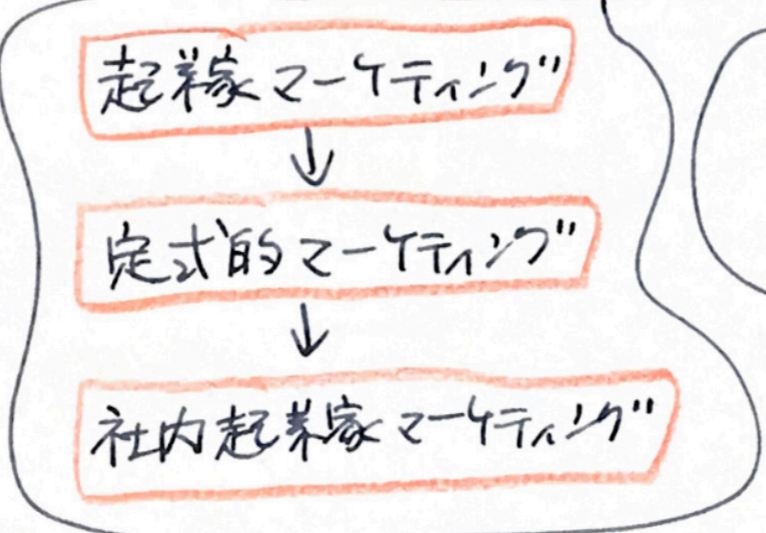 起業家マーケティング
↓
定式的マーケティング
↓
社内起業家マーケティング